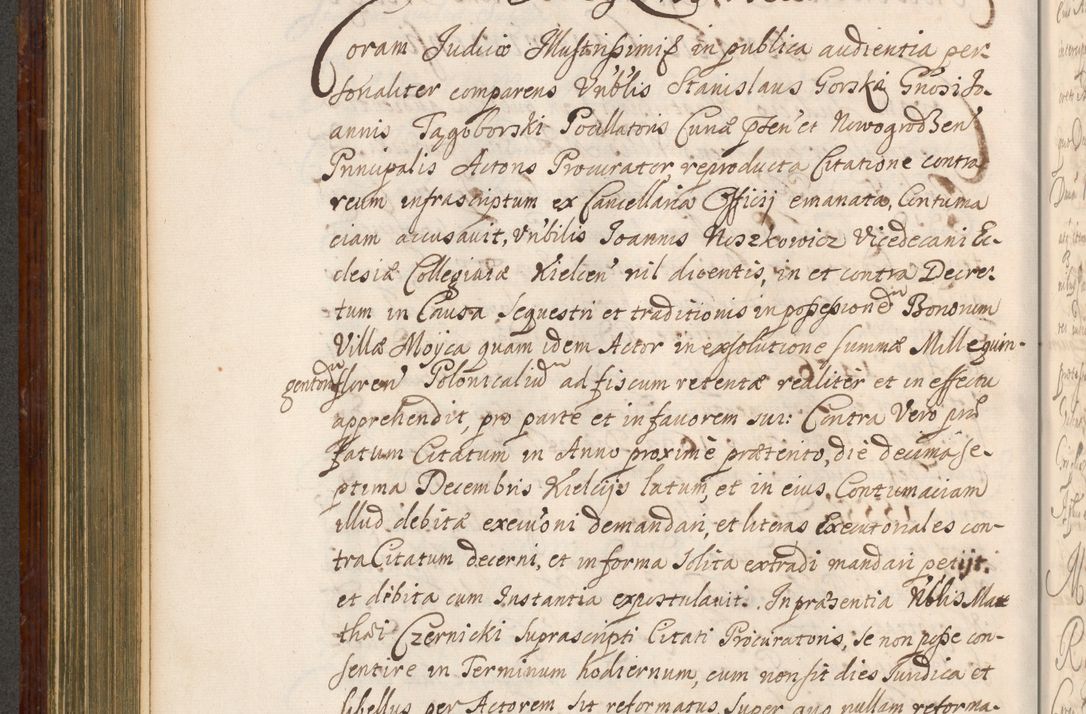 Coram Judicio Illustrissimis in publica audientia per
sonaliter comparens Vnblis Stanislaus Gorski Gnosi Jo-
annis Tągoborski Pocillatoris Curiæ psten et Nowogrodzen
Principalis Actoris Procurator, reproducta Citatione contra
reum infrascriptum ex Cancellaria Officij emanata, Contuma
ciam accusavit, Vnbilis Joannis Noszkowicz Vicedecani Ec-
clesiæ Collegiatæ Kielcen nil dicentis, in et contra Decre-
tum in Causa Sequestri et traditionis in possessionem Bonorum
Villæ Moyca quam idem Actor in exsolutione summæ Mille quin-
gentorum floren Polonicalium ad fiscum retentæ realiter et in effectu
apprehendit, pro parte et in favorem sui: Contra Vero præ
fatum Citatum in Anno proxime prætento, die decima se-
ptima Decembris Kielcijs latum, et in eius Contumaciam
illud debitæ execuoni demandari, et literas Executoriales con-
tra Citatum decerni, et in forma solita extradi mandari petijt.
et debita cum Instantia expostulavit. In præsentia Nblis Mat
thæi Czernicki suprascripti Citati Procuratoris, se non posse con-
sentire in Terminum hodiernum, cum non sit dies Juridica et
libellus per Actorem sit reformatus, super quo nullam reforma-